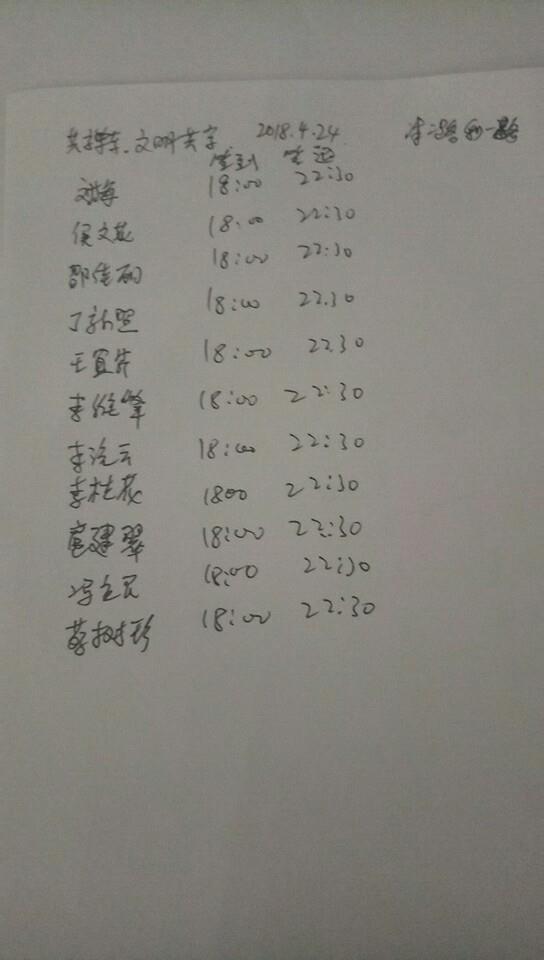 共择车、文明共享 2018.4.24
签到 签退
刘海 18:00 22:30
侯文花 18:00 22:30
邵佳丽 18:00 22:30
丁新照 18:00 22.30
王宜芹 18:00 22.30
李维肇 18:00 22:30
李洪云 18:00 22:30
李桂花 1800 22:30
扈建翠 18:00 22:30
冯全民 18:00 22:30
蔡树珍 18:00 22:30